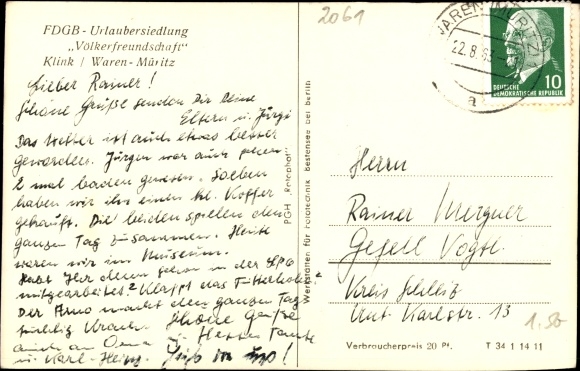 FDGB - Urlaubersiedlung
„Völkerfreundschaft"
Klink / Waren-Müritz
Lieber Rainer!
Schöne Grüße senden Dir Deine
Eltern u. Jürgi
Das Wetter ist auch etwas besser
geworden. Jürgen war auch schon
2 mal baden gewesen. Soeben
haben wir ihm einen kl. Koffer
gekauft. Die beiden spielen den
ganzen Tag zusammen. Heute
waren wir im Museum.
Habt Ihr denn schon in der LPG
mitgearbeitet? Klappt das Futterholen?
Der Arno macht den ganzen Tag
Krach. Schöne Grüße
auch an Oma u. Tante
u. Karl-Heinz.
PGH „Rotophot"
Werkstätten für Fototechnik Bestensee bei Berlin
2061
WAREN (MÜRITZ)
22.8.63
a
DEUTSCHE
DEMOKRATISCHE REPUBLIK
10
Herrn
Rainer Mergner
Gefell Vogtl.
Kreis Schleiz
Unt. Karlstr. 13
1.50
Verbraucherpreis 20 Pf.
T 34 1 14 11